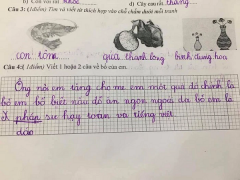 b) Con voi rất khỏe d) Cây cau rất thẳng
Câu 3: (1điểm) Tìm và viết từ thích hợp vào chỗ chấm dưới mỗi tranh
con tôm quả thanh long bình đựng hoa
Câu 4: (1điểm) Viết 1 hoặc 2 câu về bố của em.
Ông nội em tặng cho mẹ em một quà đó chính là
bố em bố biết nấu đồ ăn ngon ngoài da bố em là
phập sư hay toán và tiếng việt